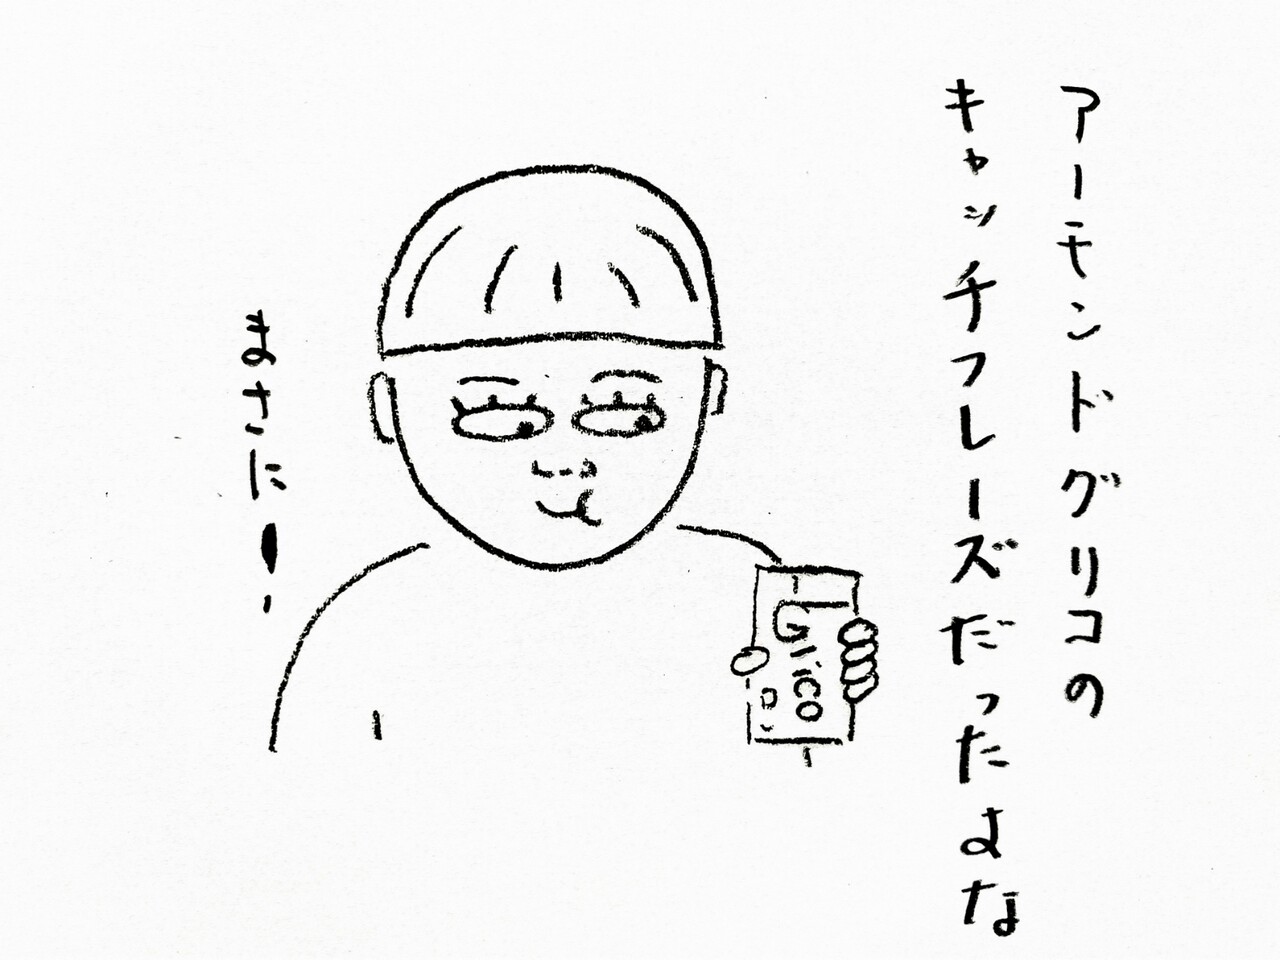 アーモンドグリコの
キャッチフレーズだったよな
まさに!
Glico